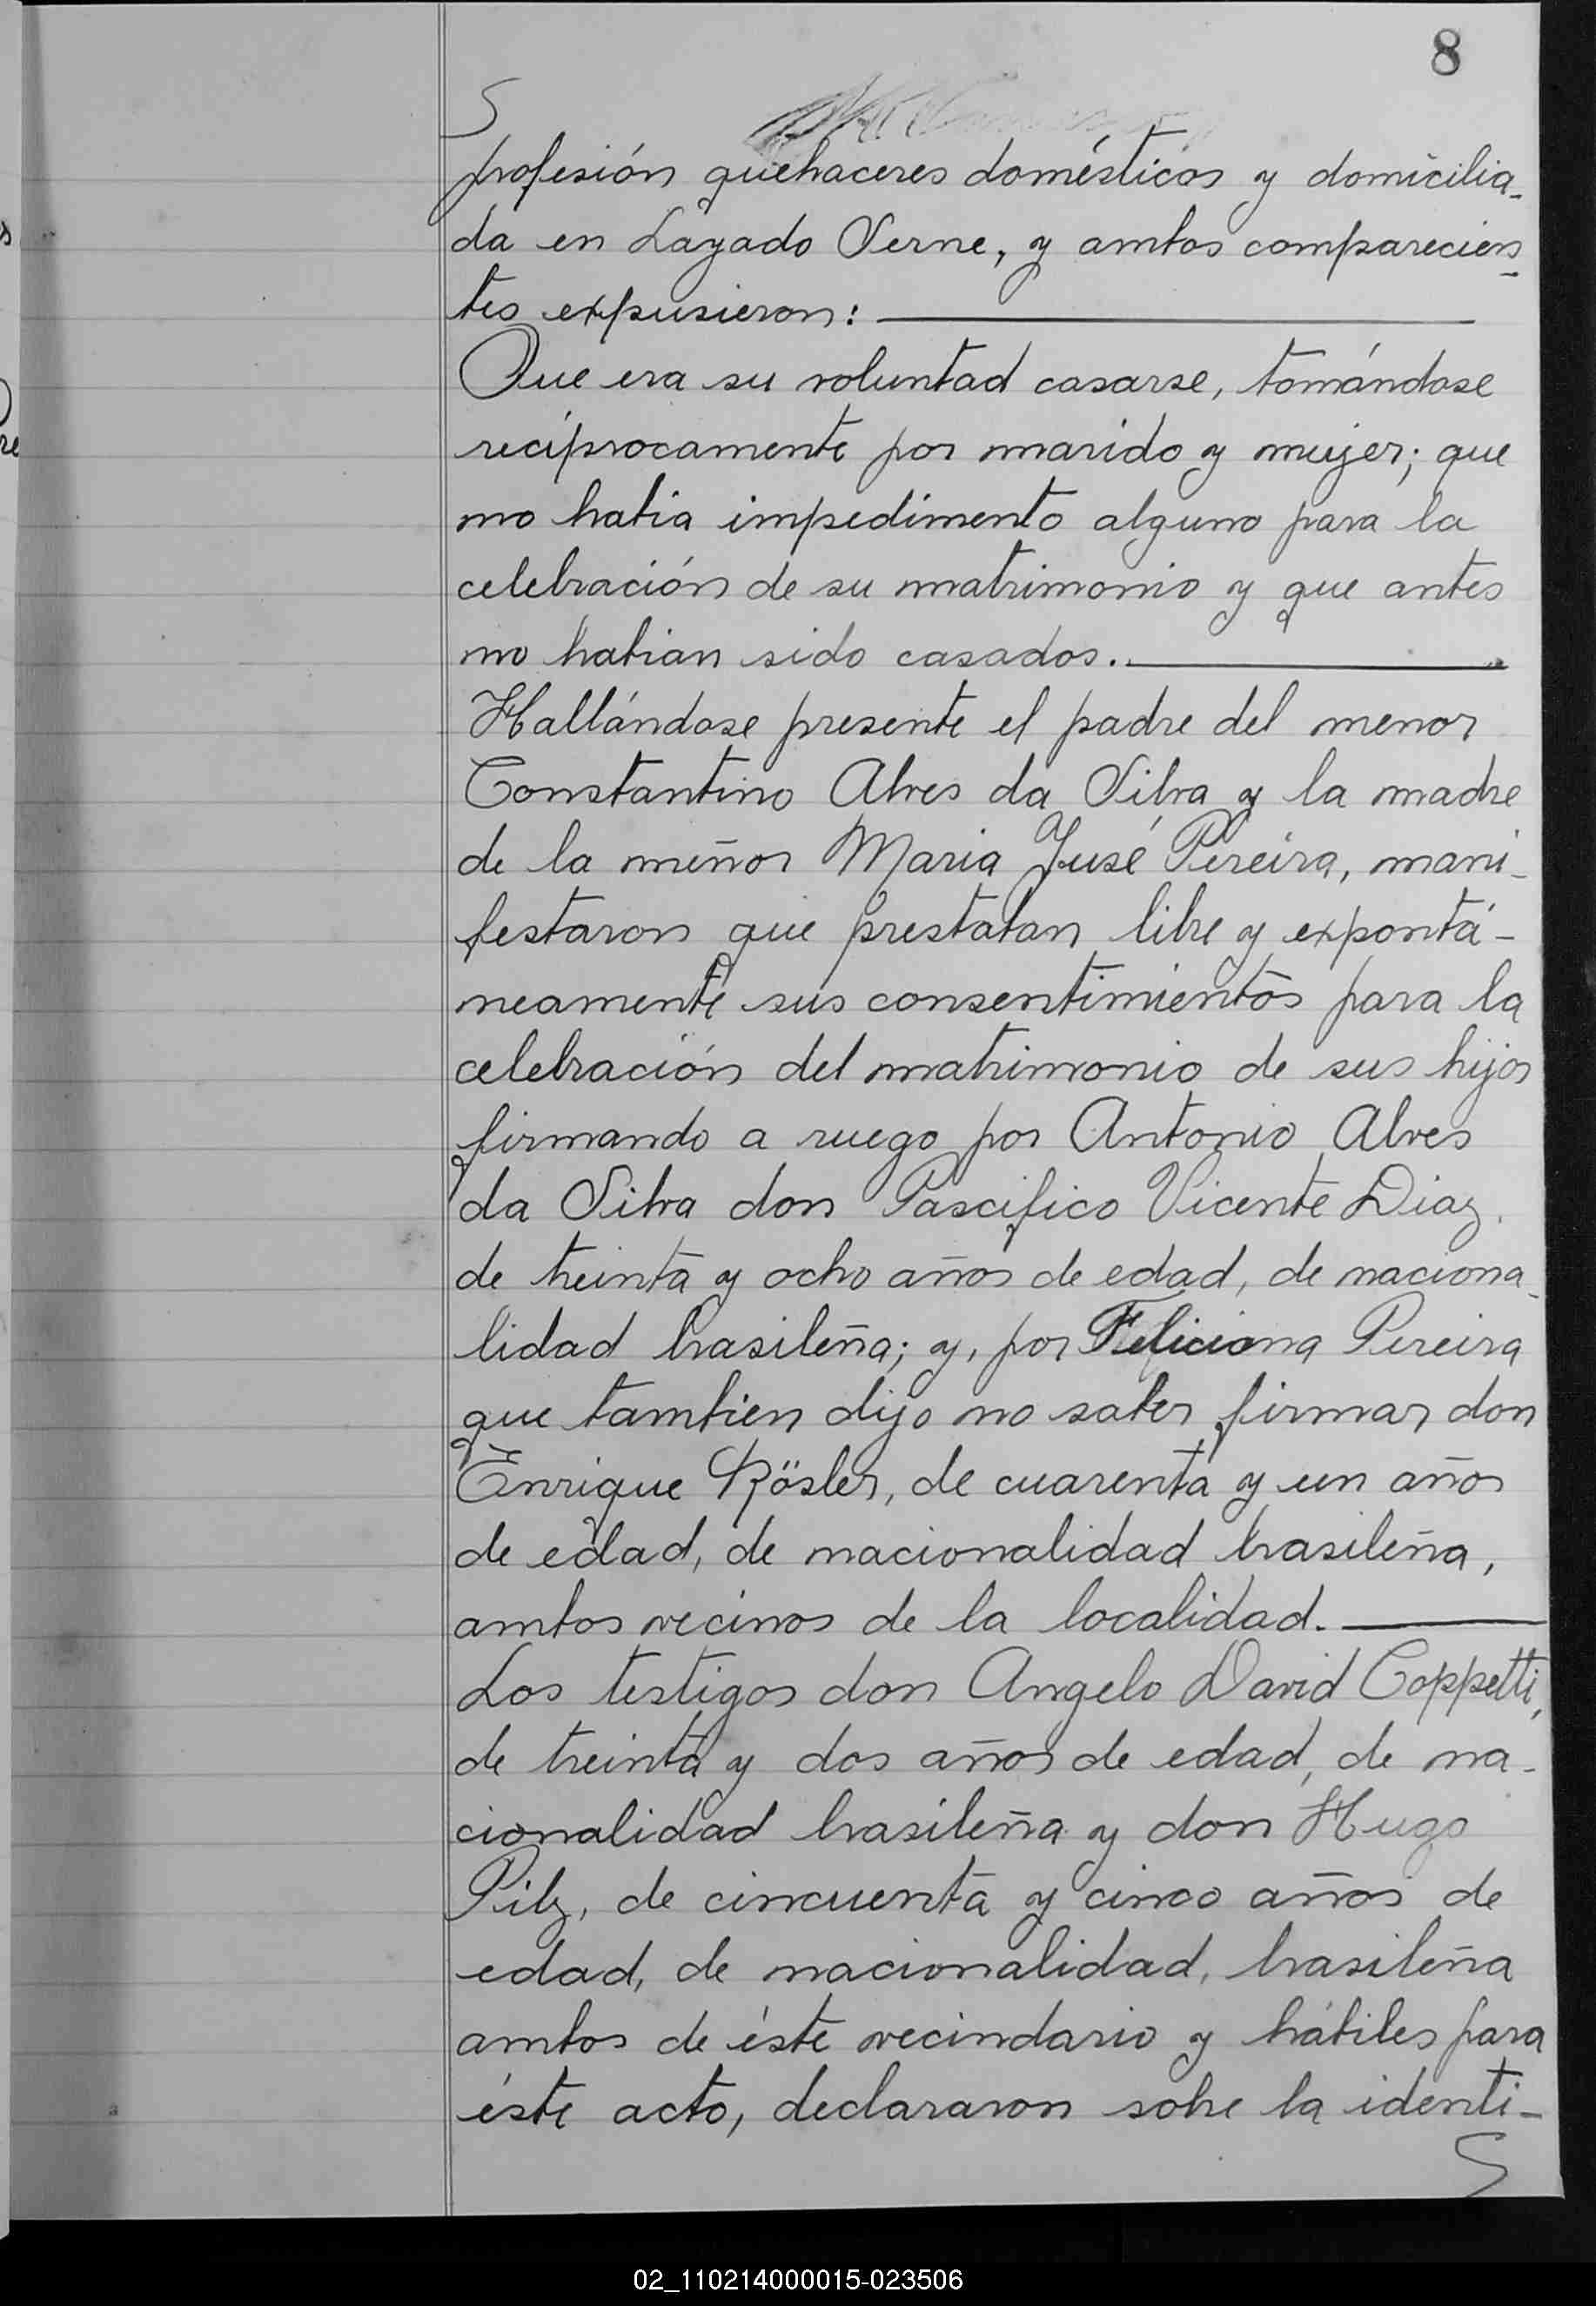 8
profesión quehaceres domésticos y domicilia-
da en Layado Serne, y ambos comparecien-
tes expusieron:
Que era su voluntad casarse, tomándose
recíprocamente por marido y mujer; que
no habia impedimento alguno para la
celebración de su matrimonio y que antes
no habian sido casados.
Hallándose presente el padre del menor
Constantino Alves da Silva y la madre
de la menor Maria José Pereira, mani-
festaron que prestaban libre y expontá-
neamente sus consentimientos para la
celebración del matrimonio de sus hijos
firmando a ruego por Antonio Alves
da Silva don Pascifico Vicente Diaz
de treinta y ocho años de edad, de naciona-
lidad brasileña; y, por Feliciona Pereira
que tambien dijo no saber firmar don
Enrique Rösler, de cuarenta y un años
de edad, de nacionalidad brasileña,
ambos vecinos de la localidad.
Los testigos don Angelo David Coppetti,
de treinta y dos años de edad, de na-
cionalidad brasileña y don Hugo
Pilz, de cincuenta y cinco años de
edad, de nacionalidad, brasileña
ambos de éste vecindario y hábiles para
éste acto, declararon sobre la identi-
02_110214000015-023506